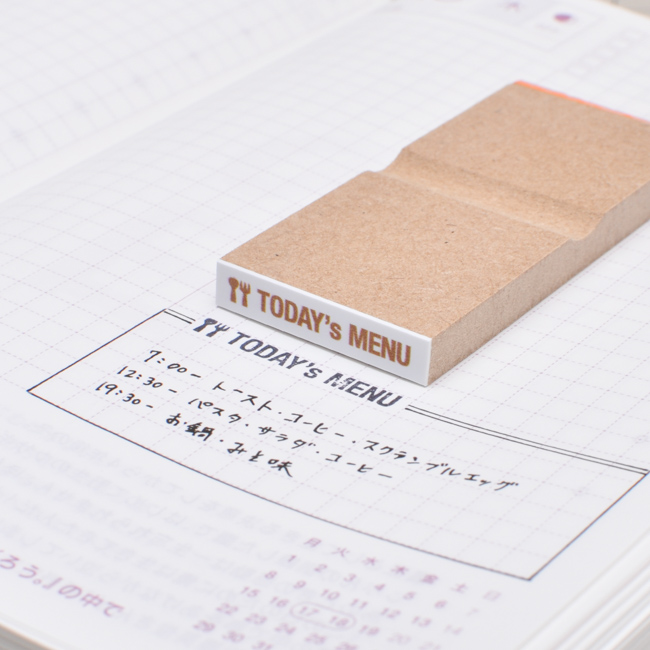 TODAY's MENU
TODAY's MENU
7:00ー トースト・コーヒー・スクランブルエッグ
12:30ー パスタ・サラダ・コーヒー
19:30ー お鍋・みそ味
月 火 水 木 金 土 日
1 2 3 4 5 6 7
8 9 10 11 12 13 14
15 16 17 18 19 20 21
22 23 24 25 26 27 28
29 30 31
ろう。」の中で